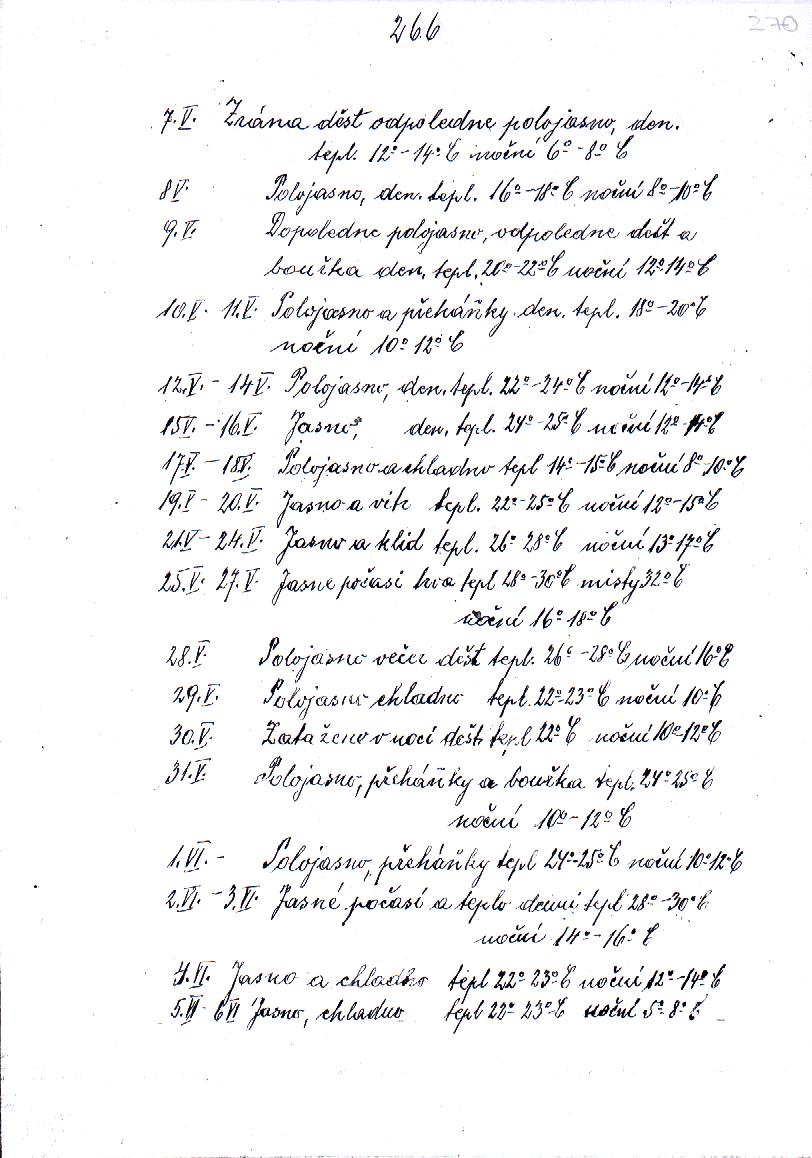 266
270
7.V. Zrána déšt odpoledne polojasno, den.
tepl. 12º-14º C noční 6º-8º C
8V. Polojasno, den. tepl. 16º-18º C noční 8º-10º C
9.V. Dopoledne polojasno, odpoledne dešt a
bouřka den. tepl. 20º-22º C noční 12º 14º C
10.V. 11.V. Polojasno a přeháňky. den. tepl. 18º-20º C
noční 10º 12º C
12.V. - 14V. Polojasno, den. tepl. 22º-24º C noční 12º-14º C
15V. - 16.V. Jasno, den. tepl. 24º-25º C noční 12º-14º C
17V. - 18V. Polojasno a chladno tepl 14º-15º C noční 8º-10º C
19.V - 20.V. Jasno a vítr tepl. 22º-25º C noční 12º-15º C
21.V - 24.V. Jasno a klid tepl. 26º 28º C noční 13º 17º C
25.V. 27.V. Jasne počasi tepl 28º-30º C misty 32º C
noční 16º-18º C
28.V. Polojasno večer déšt tepl. 26º-28º C noční 16º C
29.V. Polojasno chladno tepl. 22º-23º C noční 10º C
30.V. Zataženo v noci déšt tepl 22º C noční 10º-12º C
31.V. Polojasno, přeháňky a bouřka tepl. 24º 25º C
noční 10º-12º C
1.VI. - Polojasno, přeháňky tepl 24º-25º C noční 10º 12º C
2.VI. - 3.VI. Jasné počasí a teplo denní tepl 28º-30º C
noční 14º-16º C
4.VI. Jasno a chladno tepl 22º 23º C noční 12º-14º C
5.VI - 6VI Jasno, chladno tepl 22º 23º C noční 5º 8º C